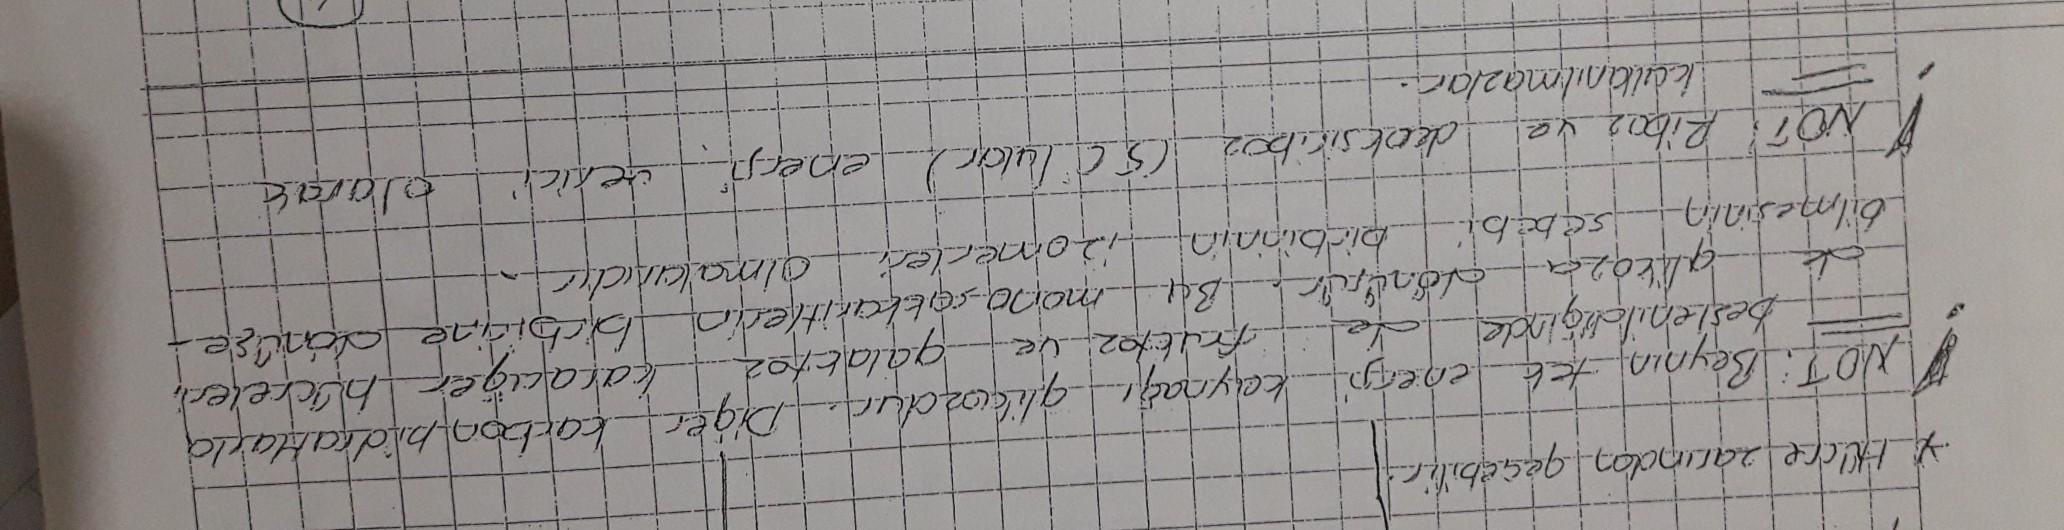 * Hücre zarından geçebilir.
NOT: Beynin tek enerji kaynağı glikozdur. Diğer karbonhidratlarla
beslenildiğinde de fruktoz ve galaktoz karaciğer hücreleri
de glikoza dönüşür. Bu monosakkaritlerin birbirine dönüşe-
bilmesinin sebebi birbirinin izomerleri olmalarıdır.
NOT: Riboz ve deoksiriboz (5C'lular) enerji verici olarak
kullanılmazlar.